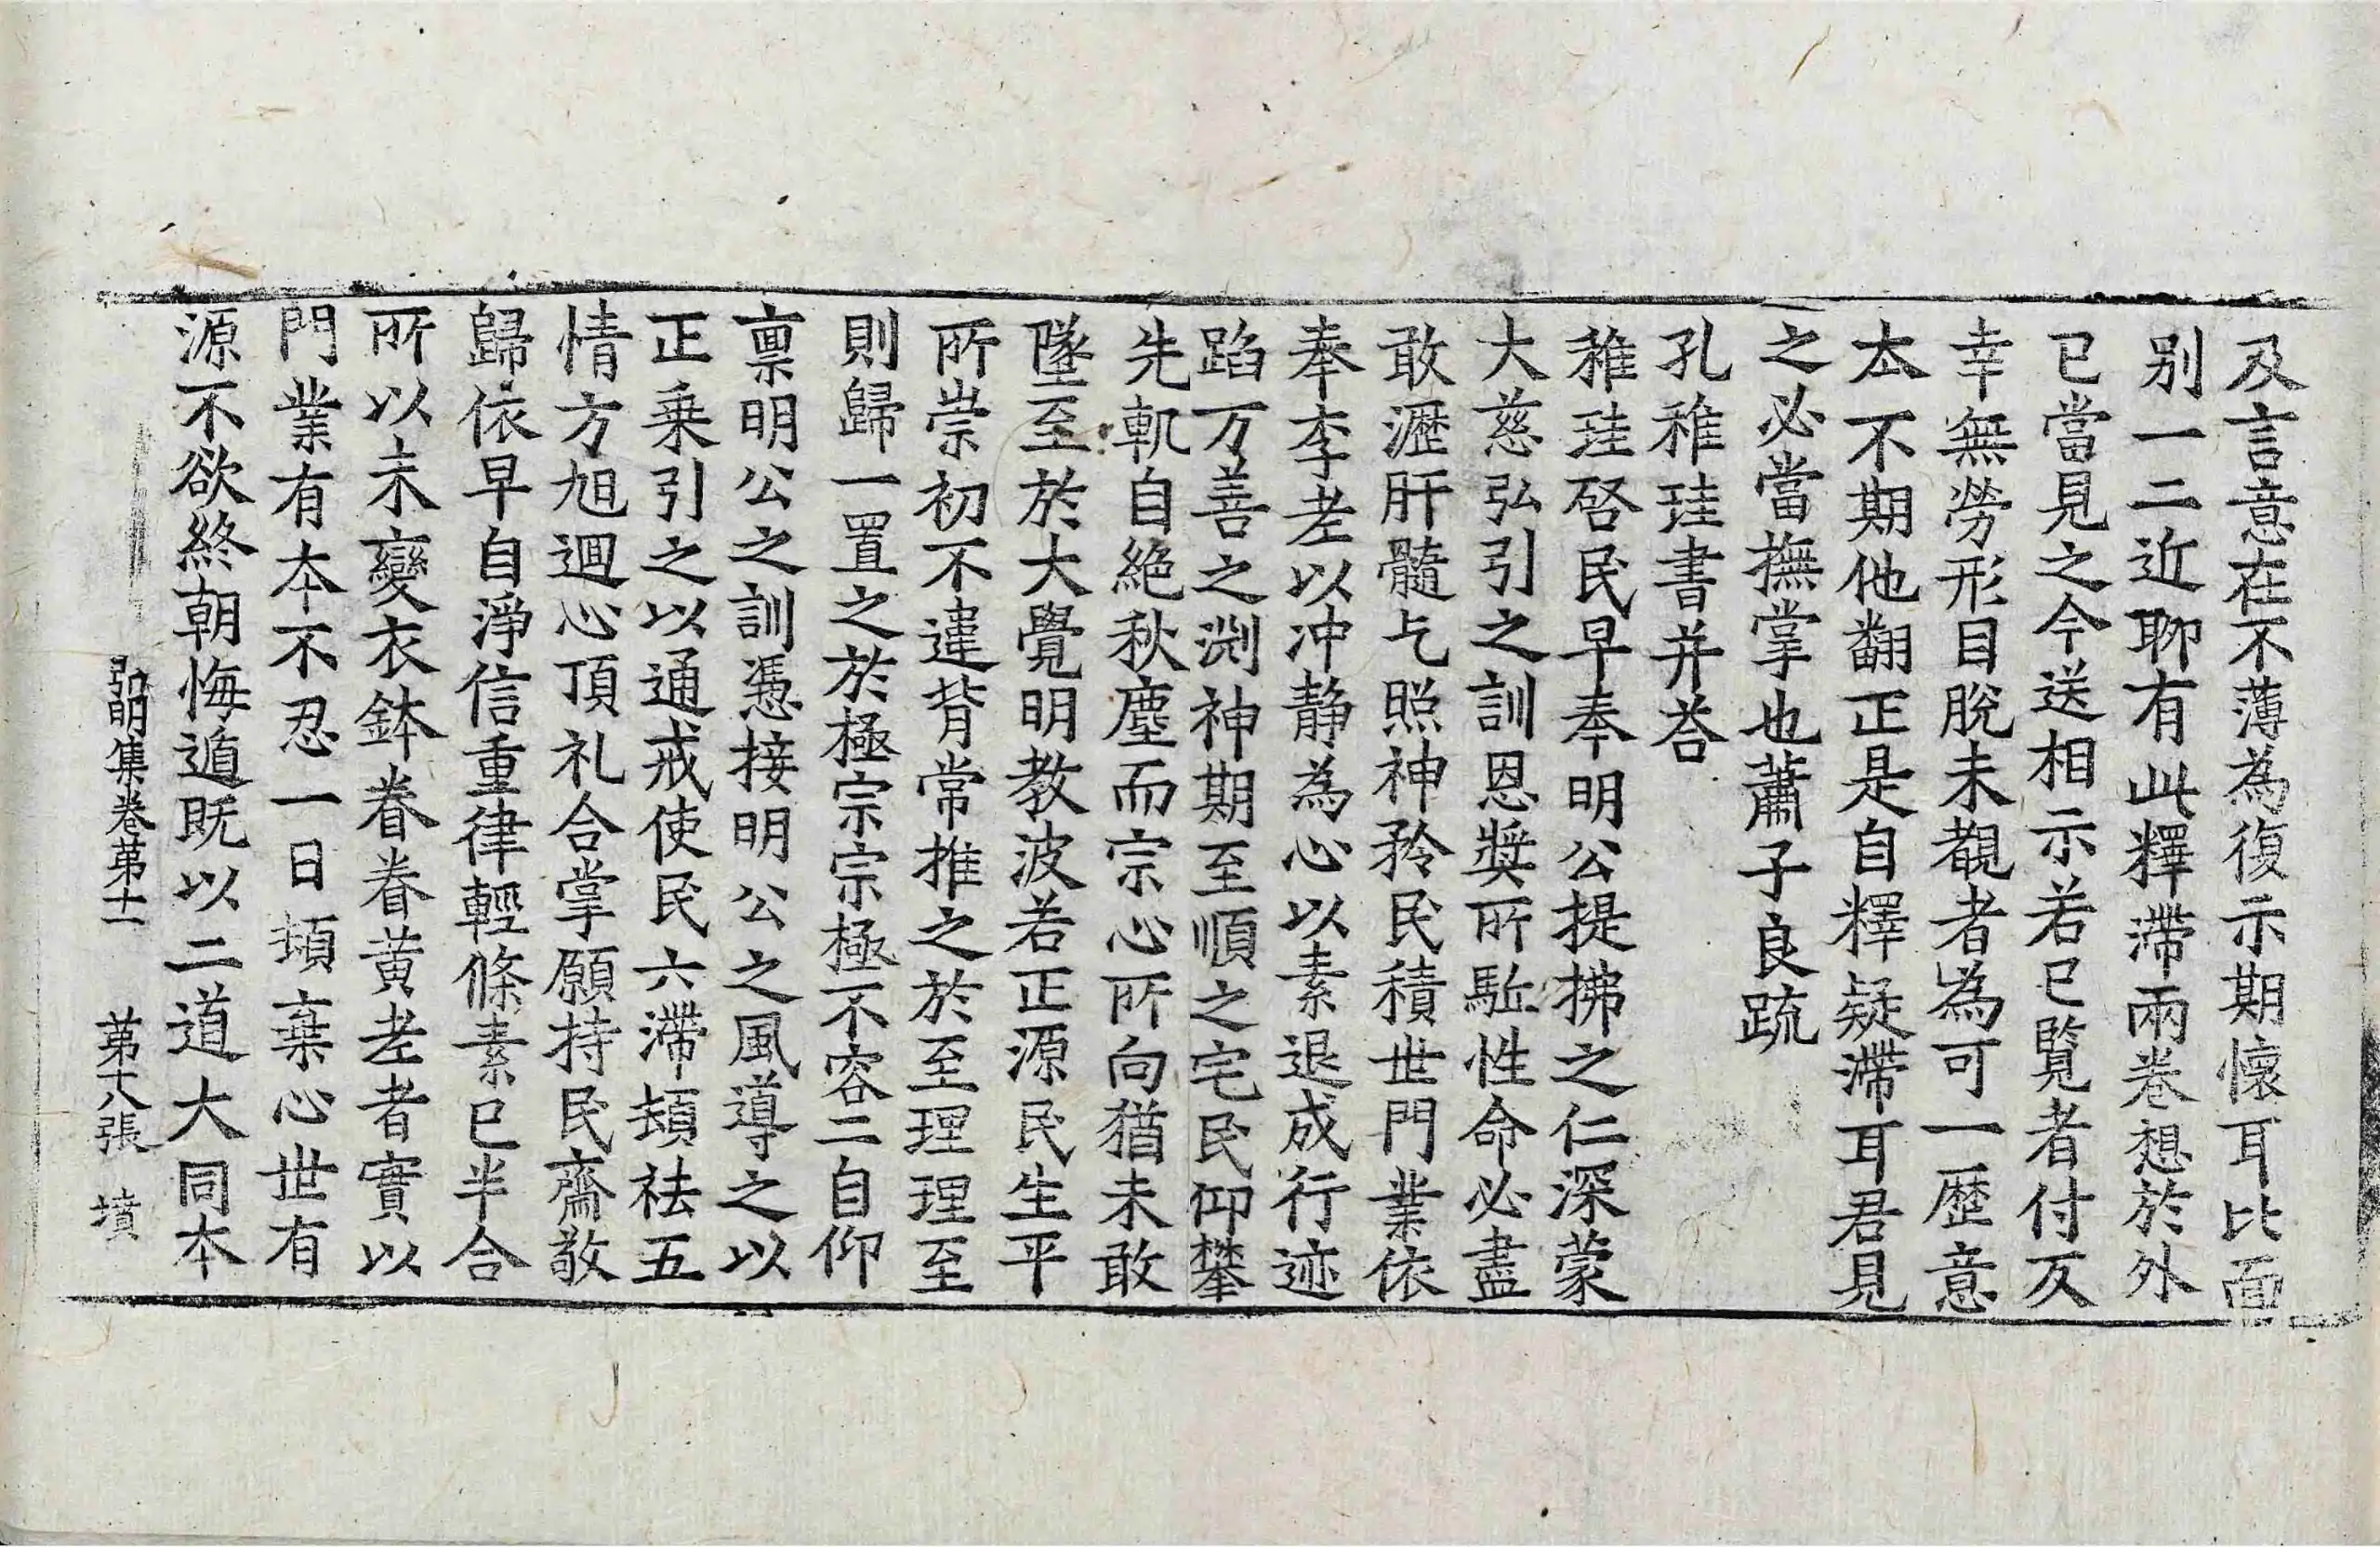 及言意在不薄為復示期懷耳比面
別一二近聊有此釋滯兩卷想於外
已當見之今送相示若已覧者付反
幸無勞形目脫未覩者為可一歷意
本不期他翻正是自釋疑滯耳君見
之必當撫掌也蕭子良䟽
孔稚珪書并荅
稚珪啓民早奉明公提拂之仁深蒙
大慈弘引之訓恩奬所駈性命必盡
敢瀝肝髓乞照神矜民積世門業依
奉李老以冲静為心以素退成行迹
蹈万善之渊神期至順之宅民仰攀
先軌自絶秋塵而宗心所向猶未敢
墜至於大覺明教波若正源民生平
所崇初不違背常推之於至理理至
則歸一置之於極宗宗極不容二自仰
禀明公之訓憑接明公之風導之以
正乗引之以通戒使民六滯頓祛五
情方旭迴心頂礼合掌願持民齋敬
歸依早自淨信重律輕條素已半合
所以未變衣鉢眷眷黄老者實以
門業有本不忍一日頓棄心世有
源不欲終朝悔遁既以二道大同本
弘明集卷第十一　第十八張　墳